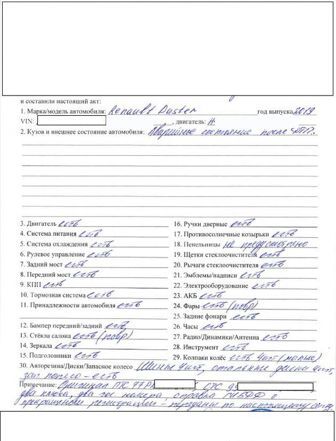 и составили настоящий акт:
1. Марка/модель автомобиля: Renault Duster год выпуска 2019
VIN: , двигатель: А:
2. Кузов и внешнее состояние автомобиля: Аварийное состояние после ДТР.
3. Двигатель есть
4. Система питания есть
5. Система охлаждения есть
6. Рулевое управление есть
7. Задний мост есть
8. Передний мост есть
9. КПП есть
10. Тормозная система есть
11. Принадлежности автомобиля есть
12. Бампер передний/задний есть
13. Стёкла салона есть (повр)
14. Зеркала есть
15. Подголовники есть
16. Ручки дверные есть
17. Противосолнечные козырьки есть
18. Пепельницы не предусмотрено
19. Щетки стеклоочистителя есть
20. Рычаги стеклоочистителя есть
21. Эмблемы/надписи есть
22. Электрооборудование есть
23. АКБ есть
24. Фары есть (повр)
25. Задние фонари есть
26. Часы есть
27. Радио/Динамики/Антенна есть
28. Инструмент есть
29. Колпаки колёс есть 4шт
30. Авторезина/Диски/Запасное колесо Шины 4шт, стальные диски 4шт,
зап колесо - есть
Примечание: Оригинал ПТС 77 СТС 99
два ключа, два гос номера, справка ГИБДД о
прекращении регистрации - переданы по настоящему акту